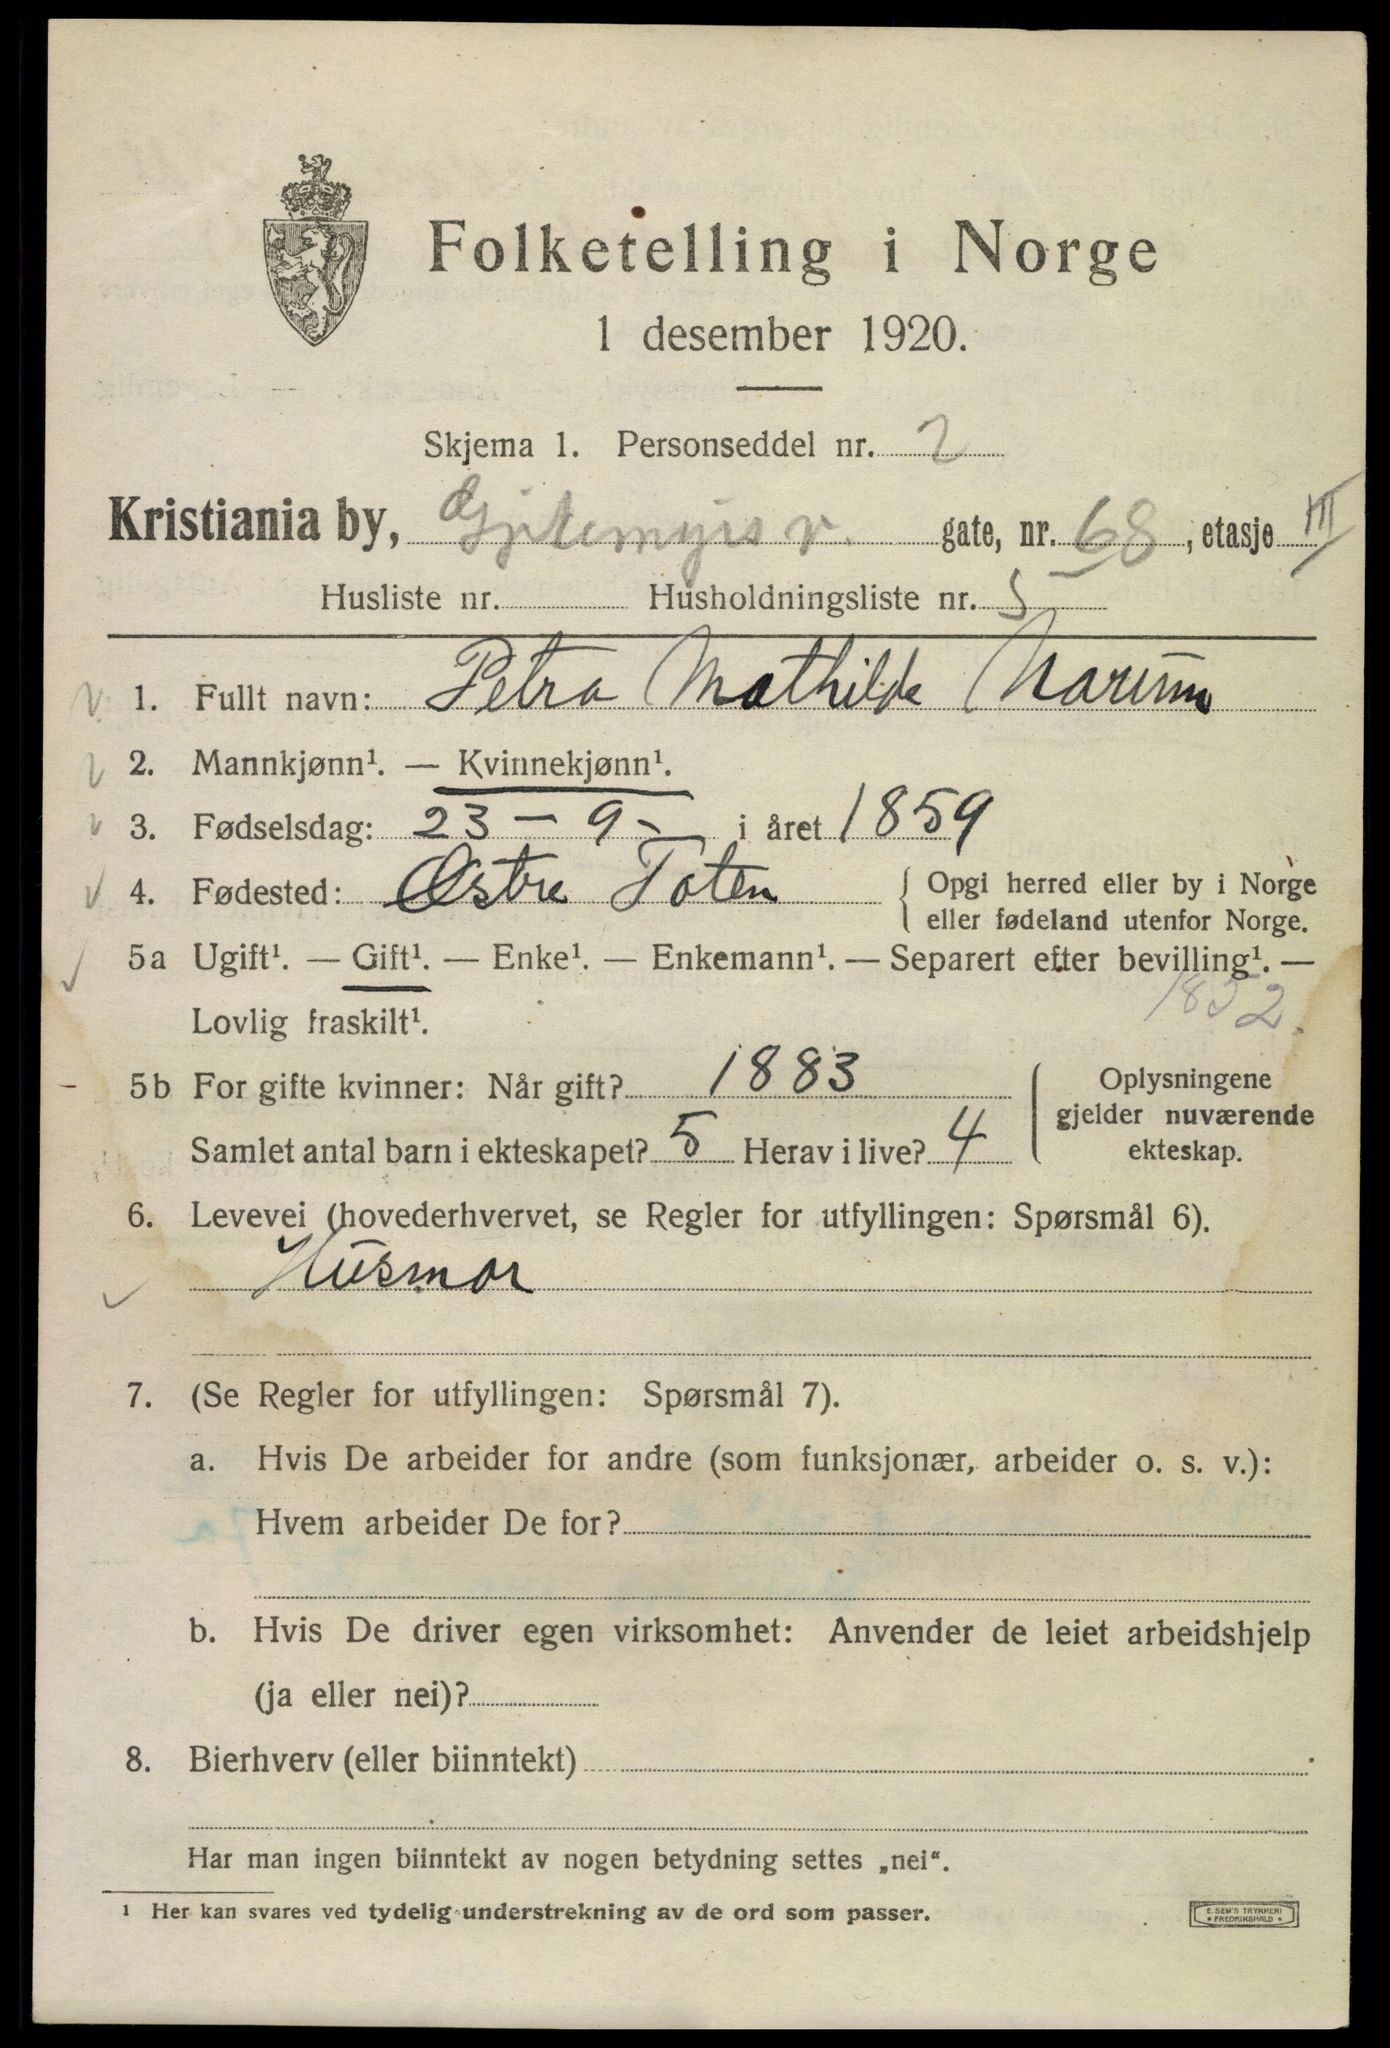 Folketelling i Norge
1 desember 1920.
Skjema 1. Personseddel nr. 2
Kristiania by, Gjetemyrs v. gate, nr. 68, etasje III
Husliste nr. Husholdningsliste nr. 5
1. Fullt navn: Petra Mathilde Narum
2. Mannkjønn¹. — Kvinnekjønn¹.
3. Fødselsdag: 23 - 9 - i året 1859
4. Fødested: Østre Toten { Opgi herred eller by i Norge
eller fødeland utenfor Norge.
5a Ugift¹. — Gift¹. — Enke¹. — Enkemann¹. — Separert efter bevilling¹. —
Lovlig fraskilt¹. 1852.
5b For gifte kvinner: Når gift? 1883
Samlet antal barn i ekteskapet? 5 Herav i live? 4
{ Oplysningene
gjelder nuværende
ekteskap.
6. Levevei (hovederhvervet, se Regler for utfyllingen: Spørsmål 6).
Husmor
7. (Se Regler for utfyllingen: Spørsmål 7).
a. Hvis De arbeider for andre (som funksjonær, arbeider o. s. v.):
Hvem arbeider De for?
b. Hvis De driver egen virksomhet: Anvender de leiet arbeidshjelp
(ja eller nei)?
8. Bierhverv (eller biinntekt)
Har man ingen biinntekt av nogen betydning settes „nei“.
1 Her kan svares ved tydelig understrekning av de ord som passer.
E. SEM'S TRYKKERI
* FREDRIKSHALD *